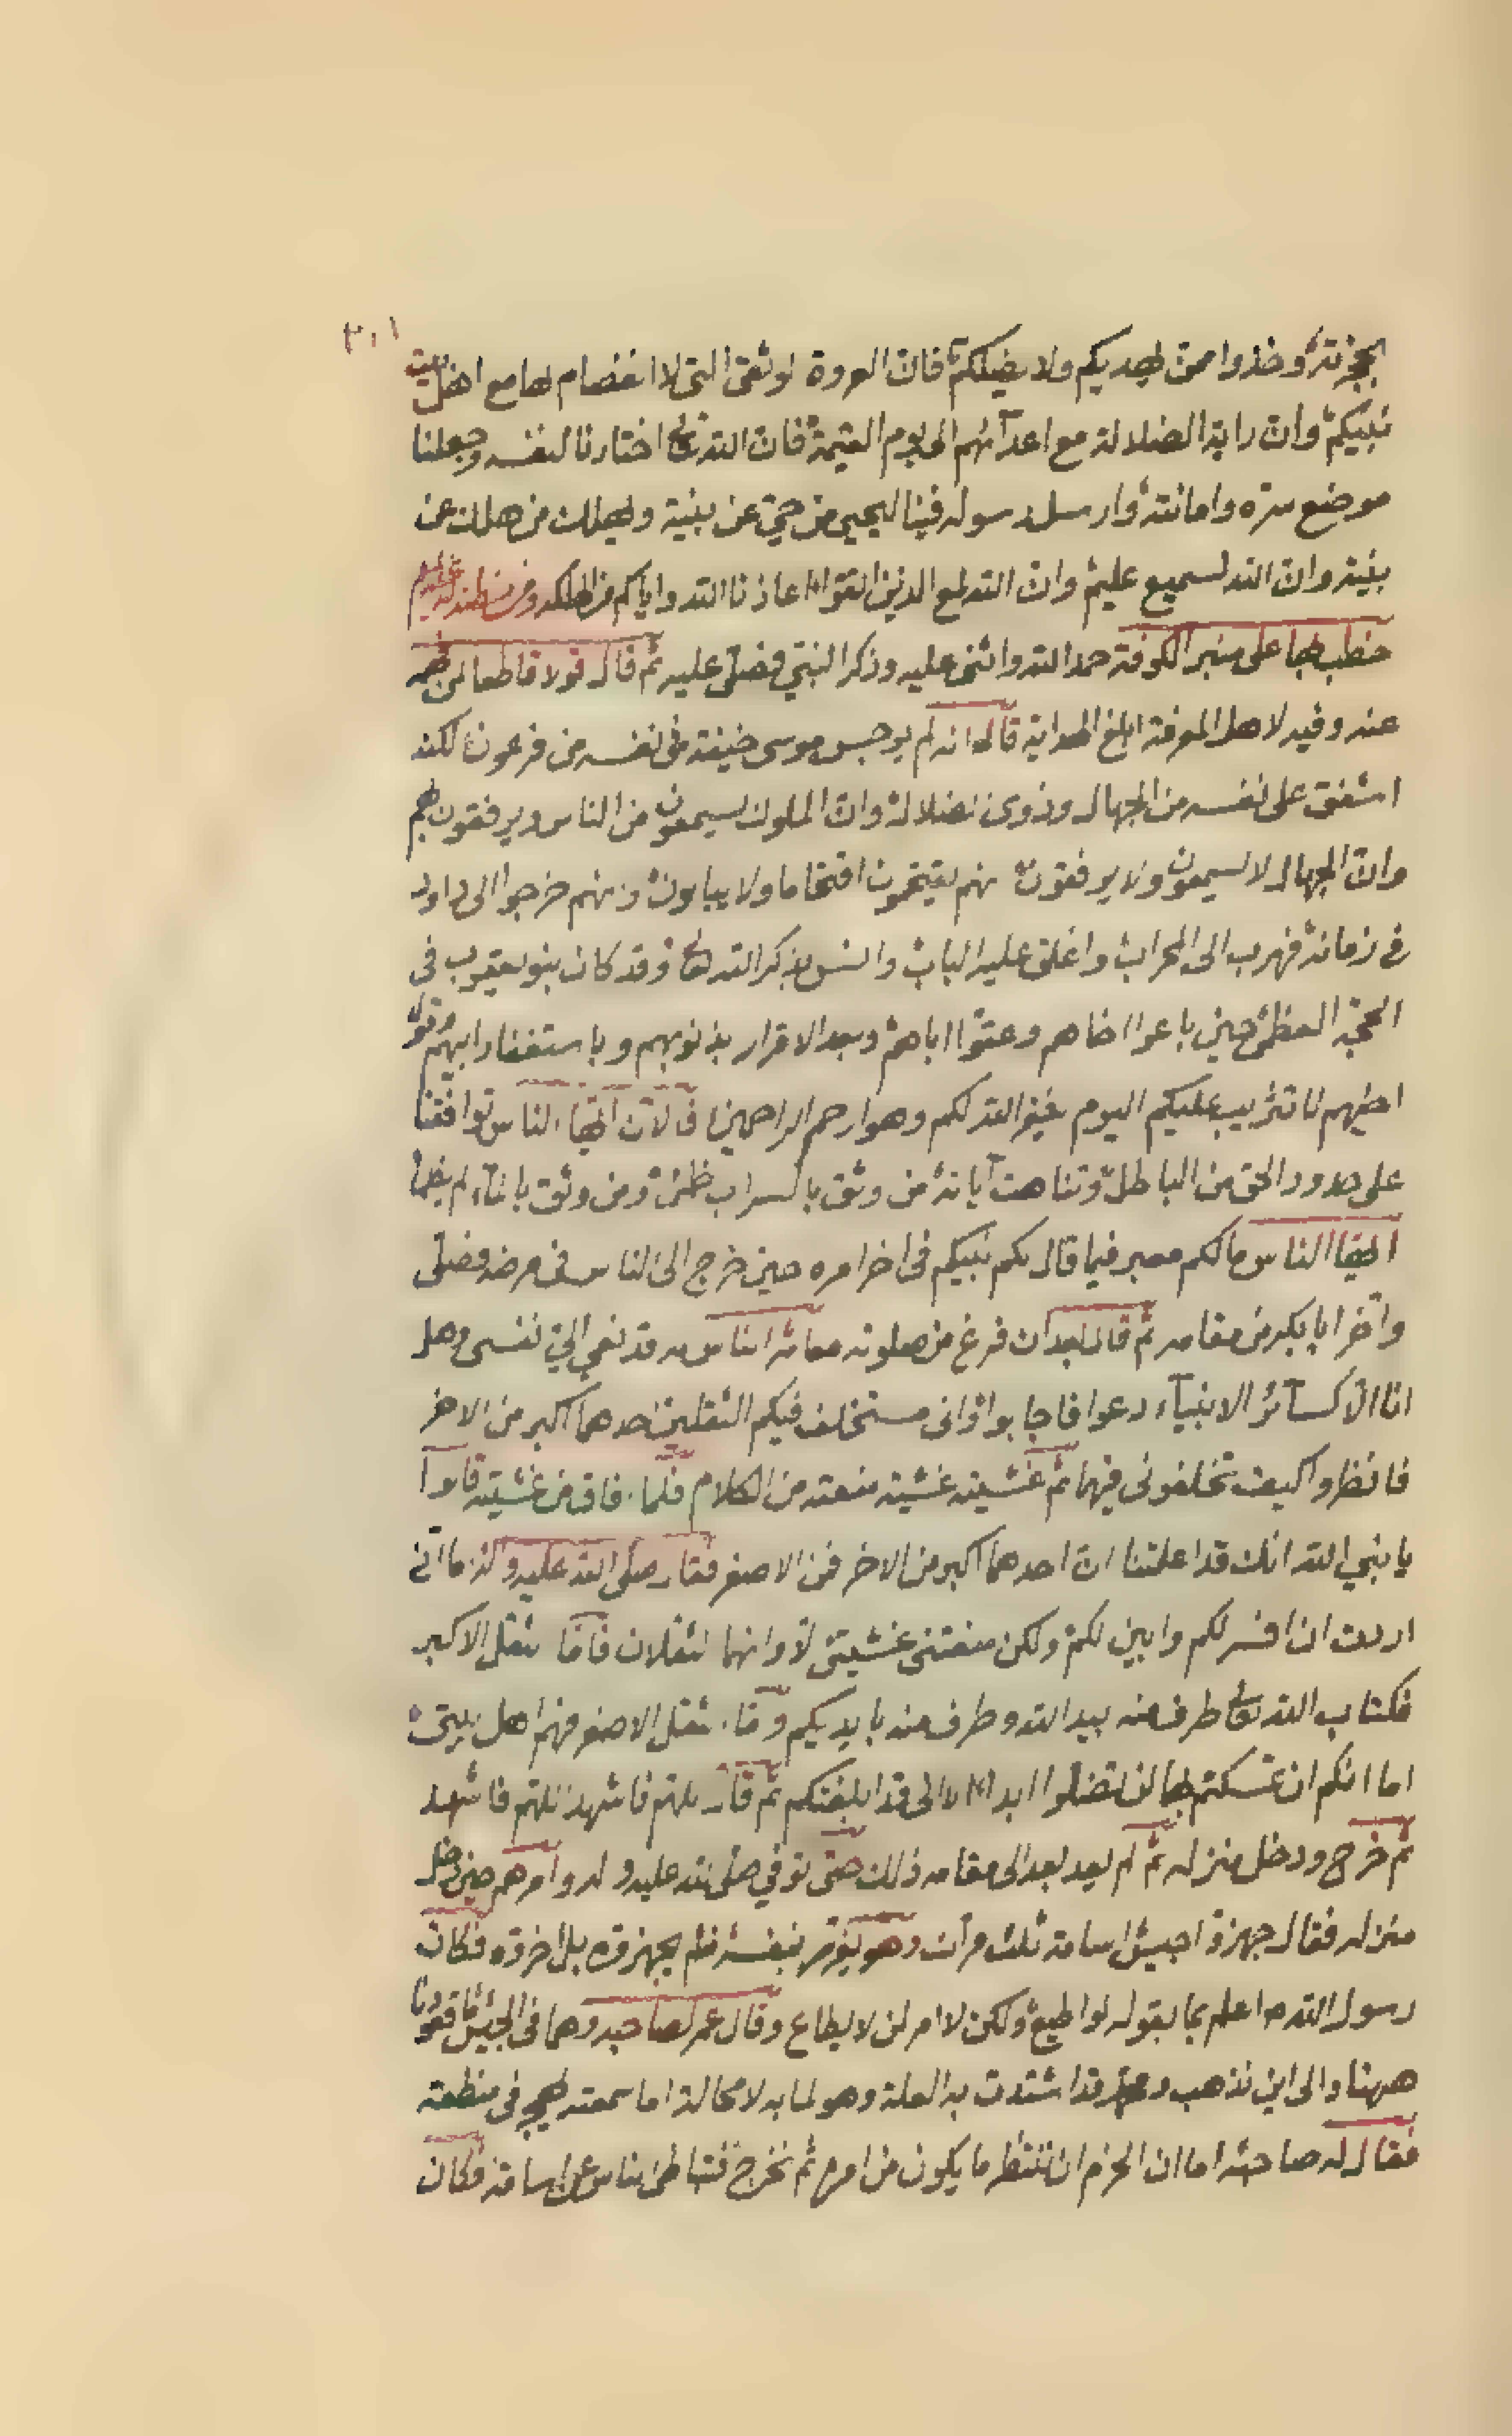 ٣٠١
بحجزته وخذوا ممن يهديكم ولا يضلكم فان العروة لوثقى التى لا انفصام لها مع اهل بيت
نبيكم وان راية الضلالة مع اعدآئهم الى يوم القيمة فان الله تعالى اختارنا لنفسه وجعلنا
موضع سره وامانته وارسل رسوله فينا ليحيى من حي عن بينة ويهلك من هلك عن
بينة وان الله لسميع عليم وان الله لمع الذين اتقوا اعاذنا الله واياكم من الهلكه ومن خطبة له
خطب بها على منبر الكوفة حمد الله واثنى عليه وذكر النبي فصلى عليه ثم قال قولا قاطعا لمن
عنه وفيه لاهل المعرفة ابلغ الهداية قال انه لم يوجس موسى خيفة فى نفسه من فرعون لكنه
اشفق على نفسه من الجهال وذوى لضلالة وان الملوك يسمعون من الناس ويرفقون بهم
وان الجهال لا يسمعون ولا يرفقون نهم يقتحمون اقتحاما ولا يبالون ونهم خرجوا الى داود
فى زمانه فهرب الى المحراب واغلق عليه الباب وانس بذكر الله تعالى وقد كان بنو يعقوب فى
المحنة العظمى حين باعوا اخاهم وعقوا اباهم وبعد الاقرار بذنوبهم وباستغفار ابيهم وقول
اخيهم لا تثريب عليكم اليوم يغفر الله لكم وهو ارحم الراحمين فالآن ايها الناس توافقنا
على حدود الحق من الباطل وتناهت آياته من وثق بالسراب ظمئ ومن وثق بالمآء لم يظمأ
ايها الناس مالكم معبر فيما قال لكم نبيكم فى اخر امره حين خرج الى الناس فى مرضه فصلى
واخر ابا بكر من مقامه ثم قال بعد ان فرغ من صلوته معاشر الناس قد نعي الي نفسى وهل
انا الا كسآئر الانبيآء دعوا فاجابوا وانى مستخلف فيكم الثقلين احدهما اكبر من الاخر
فانظروا كيف تخلفونى فيهما ثم غشيته غشية منعته من الكلام فلما فاق من غشيته قالوا
يا نبي الله انك قد اعلمتنا ان احدهما اكبر من الاخر فمن الاصغر فقال صلى الله عليه واله ما انى
اردت ان افسر لكم وابين لكم ولكن منعتنى غشيتى وانهما لثقلان فاما ثقل الاكبر
فكتاب الله تعالى طرف منه بيد الله وطرف منه بايديكم واما ثقل الاصغر فهم اهل بيتى
اما انكم ان تمسكتم بهما لن تضلوا ابدا الا انى قد ابلغتكم ثم قال للهم فاشهد للهم فاشهد
ثم خرج ودخل منزله ثم لم يعد بعد الى مقامه ذلك حتى توفي صلى لله عليه واله وامرهم حين دخل
منزله فقال جهزوا جيش اسامة ثلث مرات وهو بنفسه فلم يجهزوه بل اخروه فكان
رسول الله اعلم بما يقوله لو اطيع ولكن لا امر لمن لا يطاع وقال عمر لصاحبه وهما فى الجيش
ههنا والى اين نذهب ومحمد قد اشتدت به العلة وهو لما به لا محالة اما سمعته يهجر فى منطقه
فقال له صاحبه اما ان الحزم ان ننتظر ما يكون من امره ثم نخرج فتباطئ الناس عن اسامة فكان